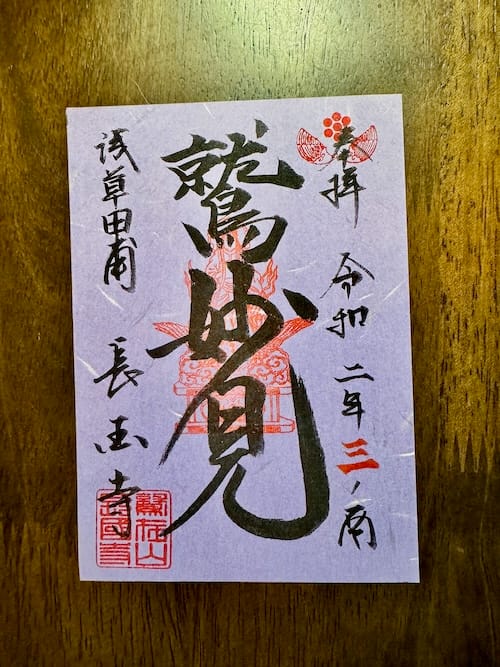 奉拝 令和二年三ノ酉
鷲妙見
浅草田甫 長国寺
鷲在山
長國寺